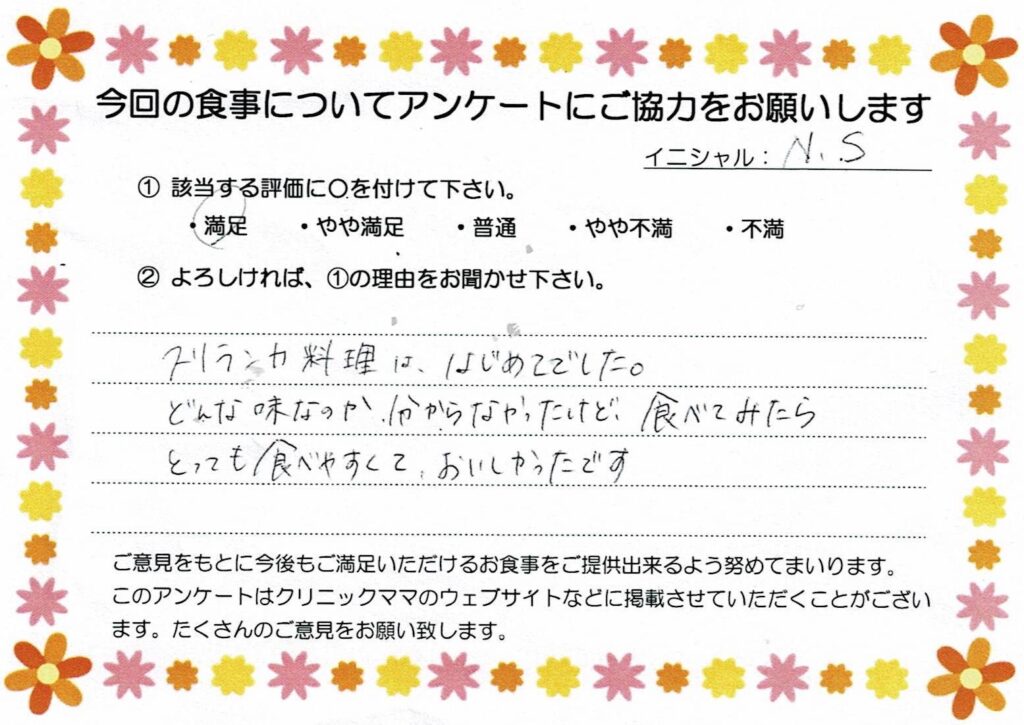 今回の食事についてアンケートにご協力をお願いします
イニシャル： N.S
① 該当する評価に〇を付けて下さい。
・満足 ・やや満足 ・普通 ・やや不満 ・不満
② よろしければ、①の理由をお聞かせ下さい。
スリランカ料理は、はじめてでした。
どんな味なのか、分からなかったけど、食べてみたら
とっても食べやすくて、おいしかったです
ご意見をもとに今後もご満足いただけるお食事をご提供出来るよう努めてまいります。
このアンケートはクリニックママのウェブサイトなどに掲載させていただくことがござい
ます。たくさんのご意見をお願い致します。